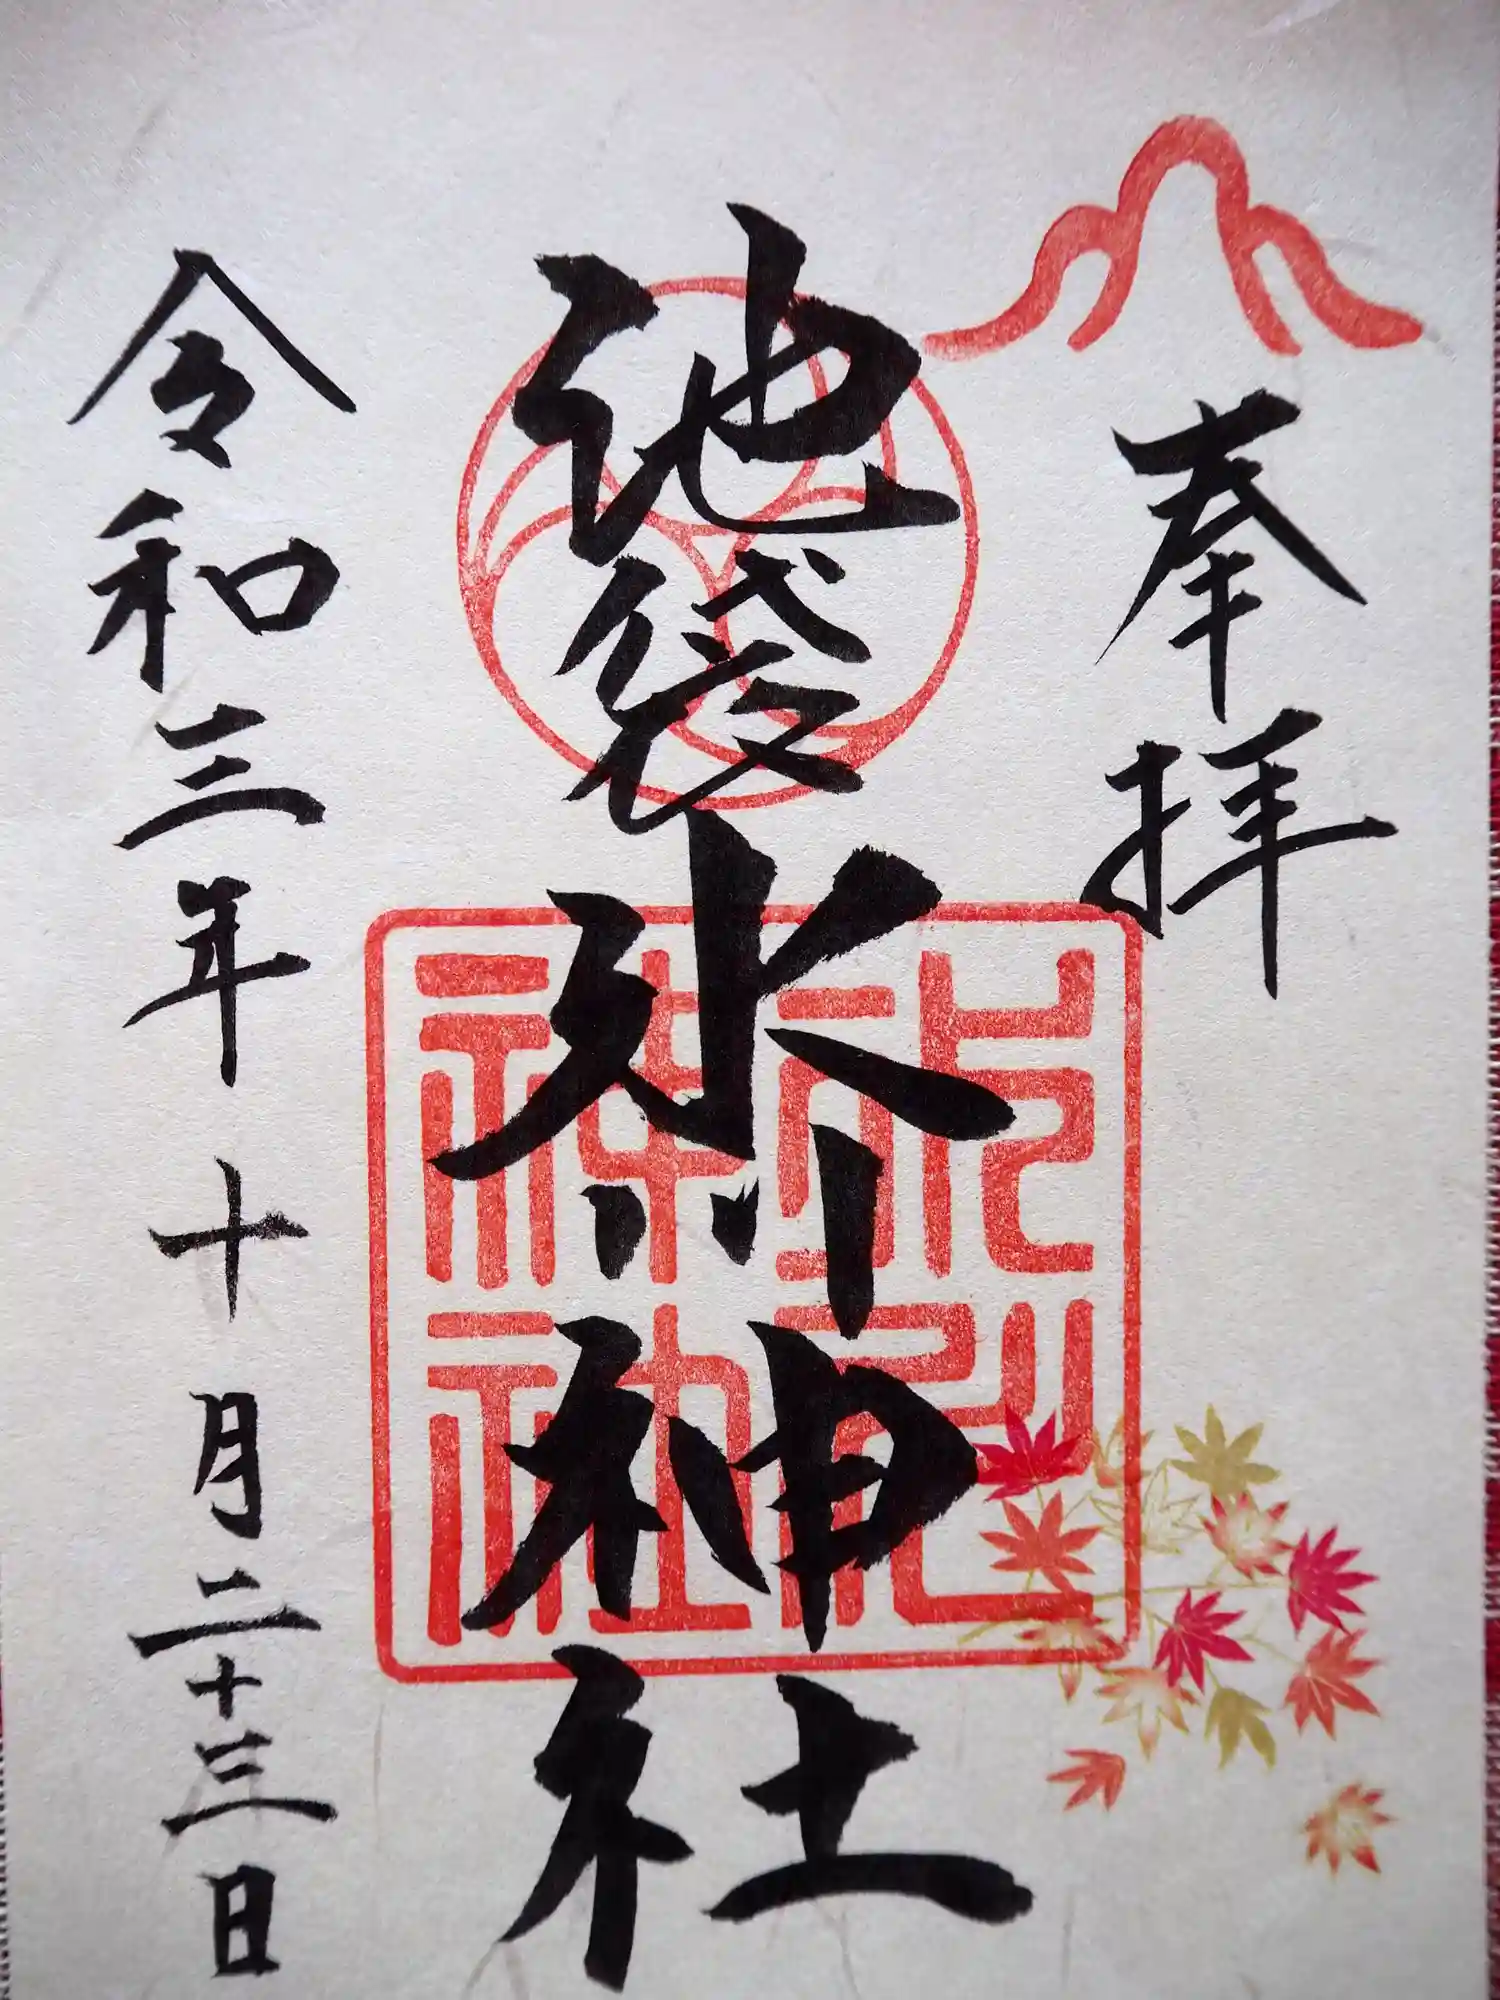 奉拝
池袋氷川神社
令和三年十月二十三日
神社